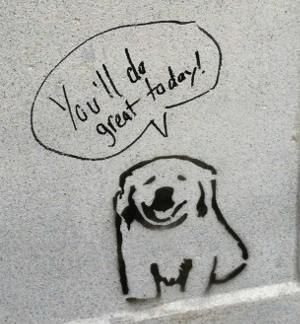 You'll do
great today!